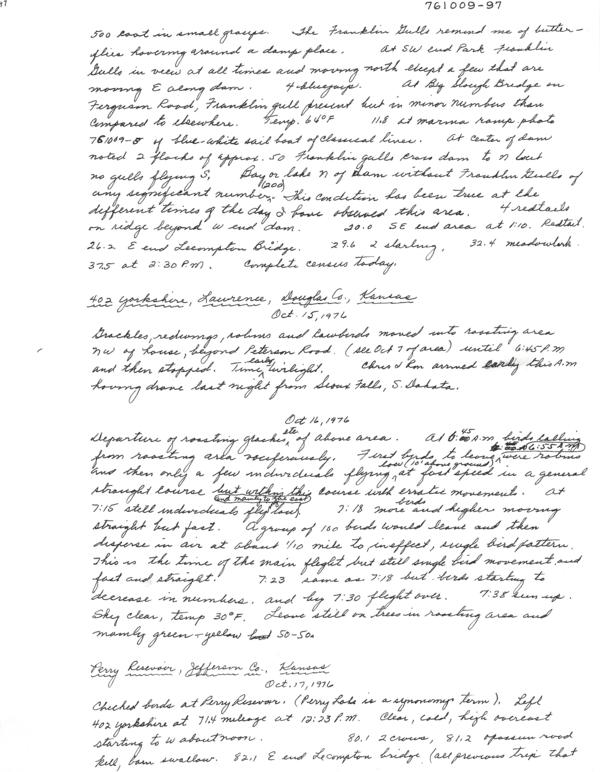 761009-97
500 coot in small groups. The Franklin Gulls remind me of butter-
flies hovering around a damp place. At SW end Park Franklin
Gulls in view at all times and moving north except a few that are
moving E along dam. 4 bluejays. At Big Slough Bridge on
Ferguson Road, Franklin gull present but in minor numbers than
compared to elsewhere. Temp. 64°F 11.8 at marina ramp photo
761009-8 of blue-white sail boat of classical lines. At center of dam
noted 2 flocks of approx. 50 Franklin gulls cross dam to N but
no gulls flying S. Bay or lake N of Dam without Franklin Gulls of
any significant number (200). This condition has been true at the
different times of the day I have observed this area. 4 redtails
on ridge beyond W end dam. 20.0 SE end area at 1:10. Redtail.
26.2 E end Lecompton Bridge. 29.6 2 starling, 32.4 meadowlark.
37.5 at 2:30 P.M. Complete census today.
402 Yorkshire, Lawrence, Douglas Co., Kansas
Oct. 15, 1976
Grackles, redwings, robins and cowbirds moved into roosting area
NW of house, beyond Peterson Road. (see Oct 7 of area) until 6:45 P.M
and then stopped. Time, early twilight. Chris & Ron arrived early this A.M
having drove last night from Sioux Falls, S. Dakota.
Oct 16, 1976
Departure of roosting grackles etc of above area. At 6:45 A.M. birds calling
from roosting area vociferously. First birds to leave were robins
and then only a few individuals flying low (10' above ground) at fast speed in a general
straight course but within this course with erratic movements. At
7:15 still individuals fly low, 7:18 more birds and higher moving
straight but fast. A group of 100 birds would leave and then
disperse in air at about 1/10 mile to, in effect, single bird pattern.
This is the time of the main flight but still single bird movement and
fast and straight. 7:23 same as 7:18 but birds starting to
decrease in numbers. and by 7:30 flight over. 7:38 sun up.
Sky clear, temp 30°F. Leaves still on trees in roosting area and
mainly green + yellow 50-50.
Perry Resevoir, Jefferson Co., Kansas
Oct. 17, 1976
Checked birds at Perry Resevoir. (Perry Lake is a synonomy term). Left
402 Yorkshire at 71.4 mileage at 12:23 P.M. Clear, cold, high overcast
starting to W about noon. 80.1 2 crows, 81.2 opossum road
kill, barn swallow. 82.1 E end Lecompton bridge (all previous trip that